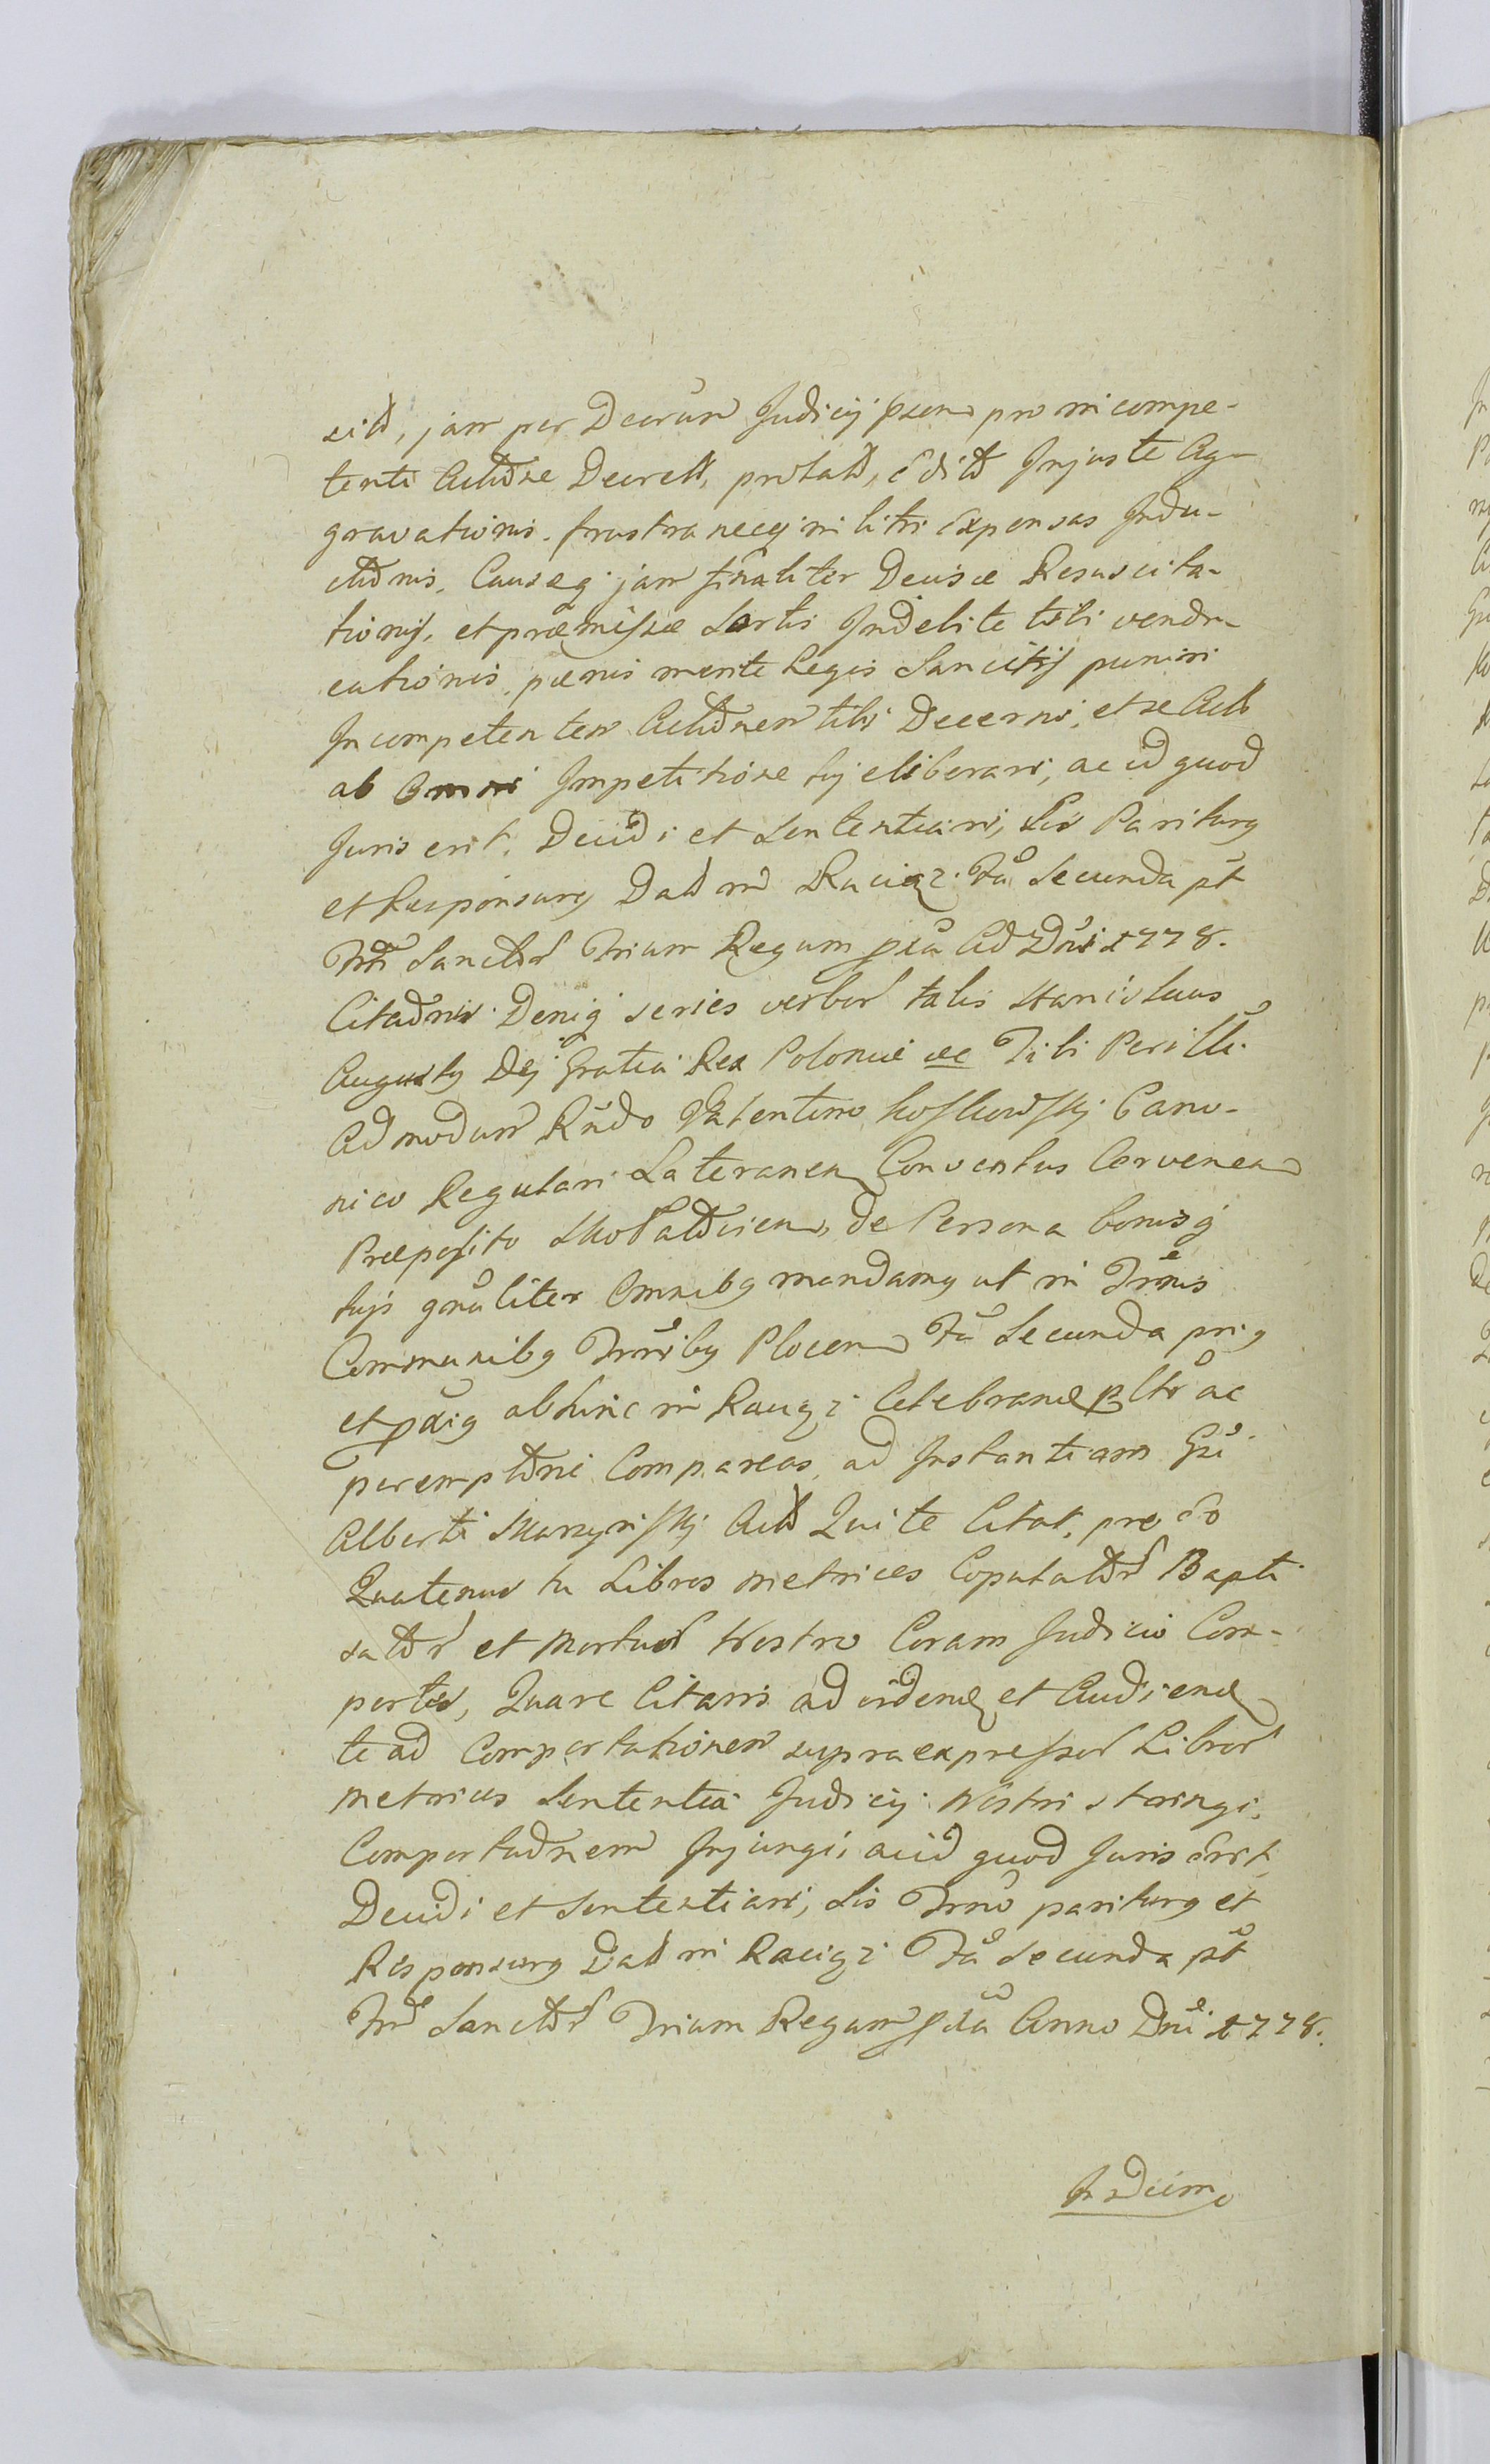 jam per Decrum Judicij pro incompe-
tenti Decrett. Injuste Ag-
gravationis. frustraneeq in litri Expensas Indu-
ctionis, Causeq jam finaliter Decisæ Resuscita-
tionis, et præmissæ Sortis Indebite tibi vendi-
cationis, pænis mente Legis Sancitis puniri
Incompetentem tibi Decerni, et se Actt
ab Omni Impetitione tuj eliberari, ac id quod
Juris erit. Decidi et Sententiari, Sis Pariturg
et Responsurg Datt in Raciąz. Fa Secunda pt
Sanctor Trium Regum pxa AD Dni 1778.
Citaonis Deniq series verbor talis Stanislaus
Augustg Dej Gratia Rex Poloniæ etc Tibi Perilli.
Admodum Rndo Valentino Cano-
nico Regulari Lateranen Conventus Cervenen
Præposito de Persona bonisq
tuis gnaliter Omnibg mandamg ut in Trnis
Communibg Plocen Fa Secunda
et abhinc in Raciąz Celebrand ac
peremptorie Compareas, ad Instantiam Gsi
Alberti Actt Qui te Citat, pro Eo
Quatenus tu Libros metrices Copulator Bapti-
sator et Mortuor Coram Judicio Com-
portes, Quare Citaris ad vidend et Audiend
te ad Comportationem supraexpressor Libror
metrices Sententia Judicij Nostri stringi,
Comportaonem Injungi, ac id quod Juris Erit
Decidi et Sententiari, Sis Trno pariturg et
Responsurg Datt in Raciąz Fa Secunda pt
Sanctor Trium Regum pxa Anno Dni 1778.